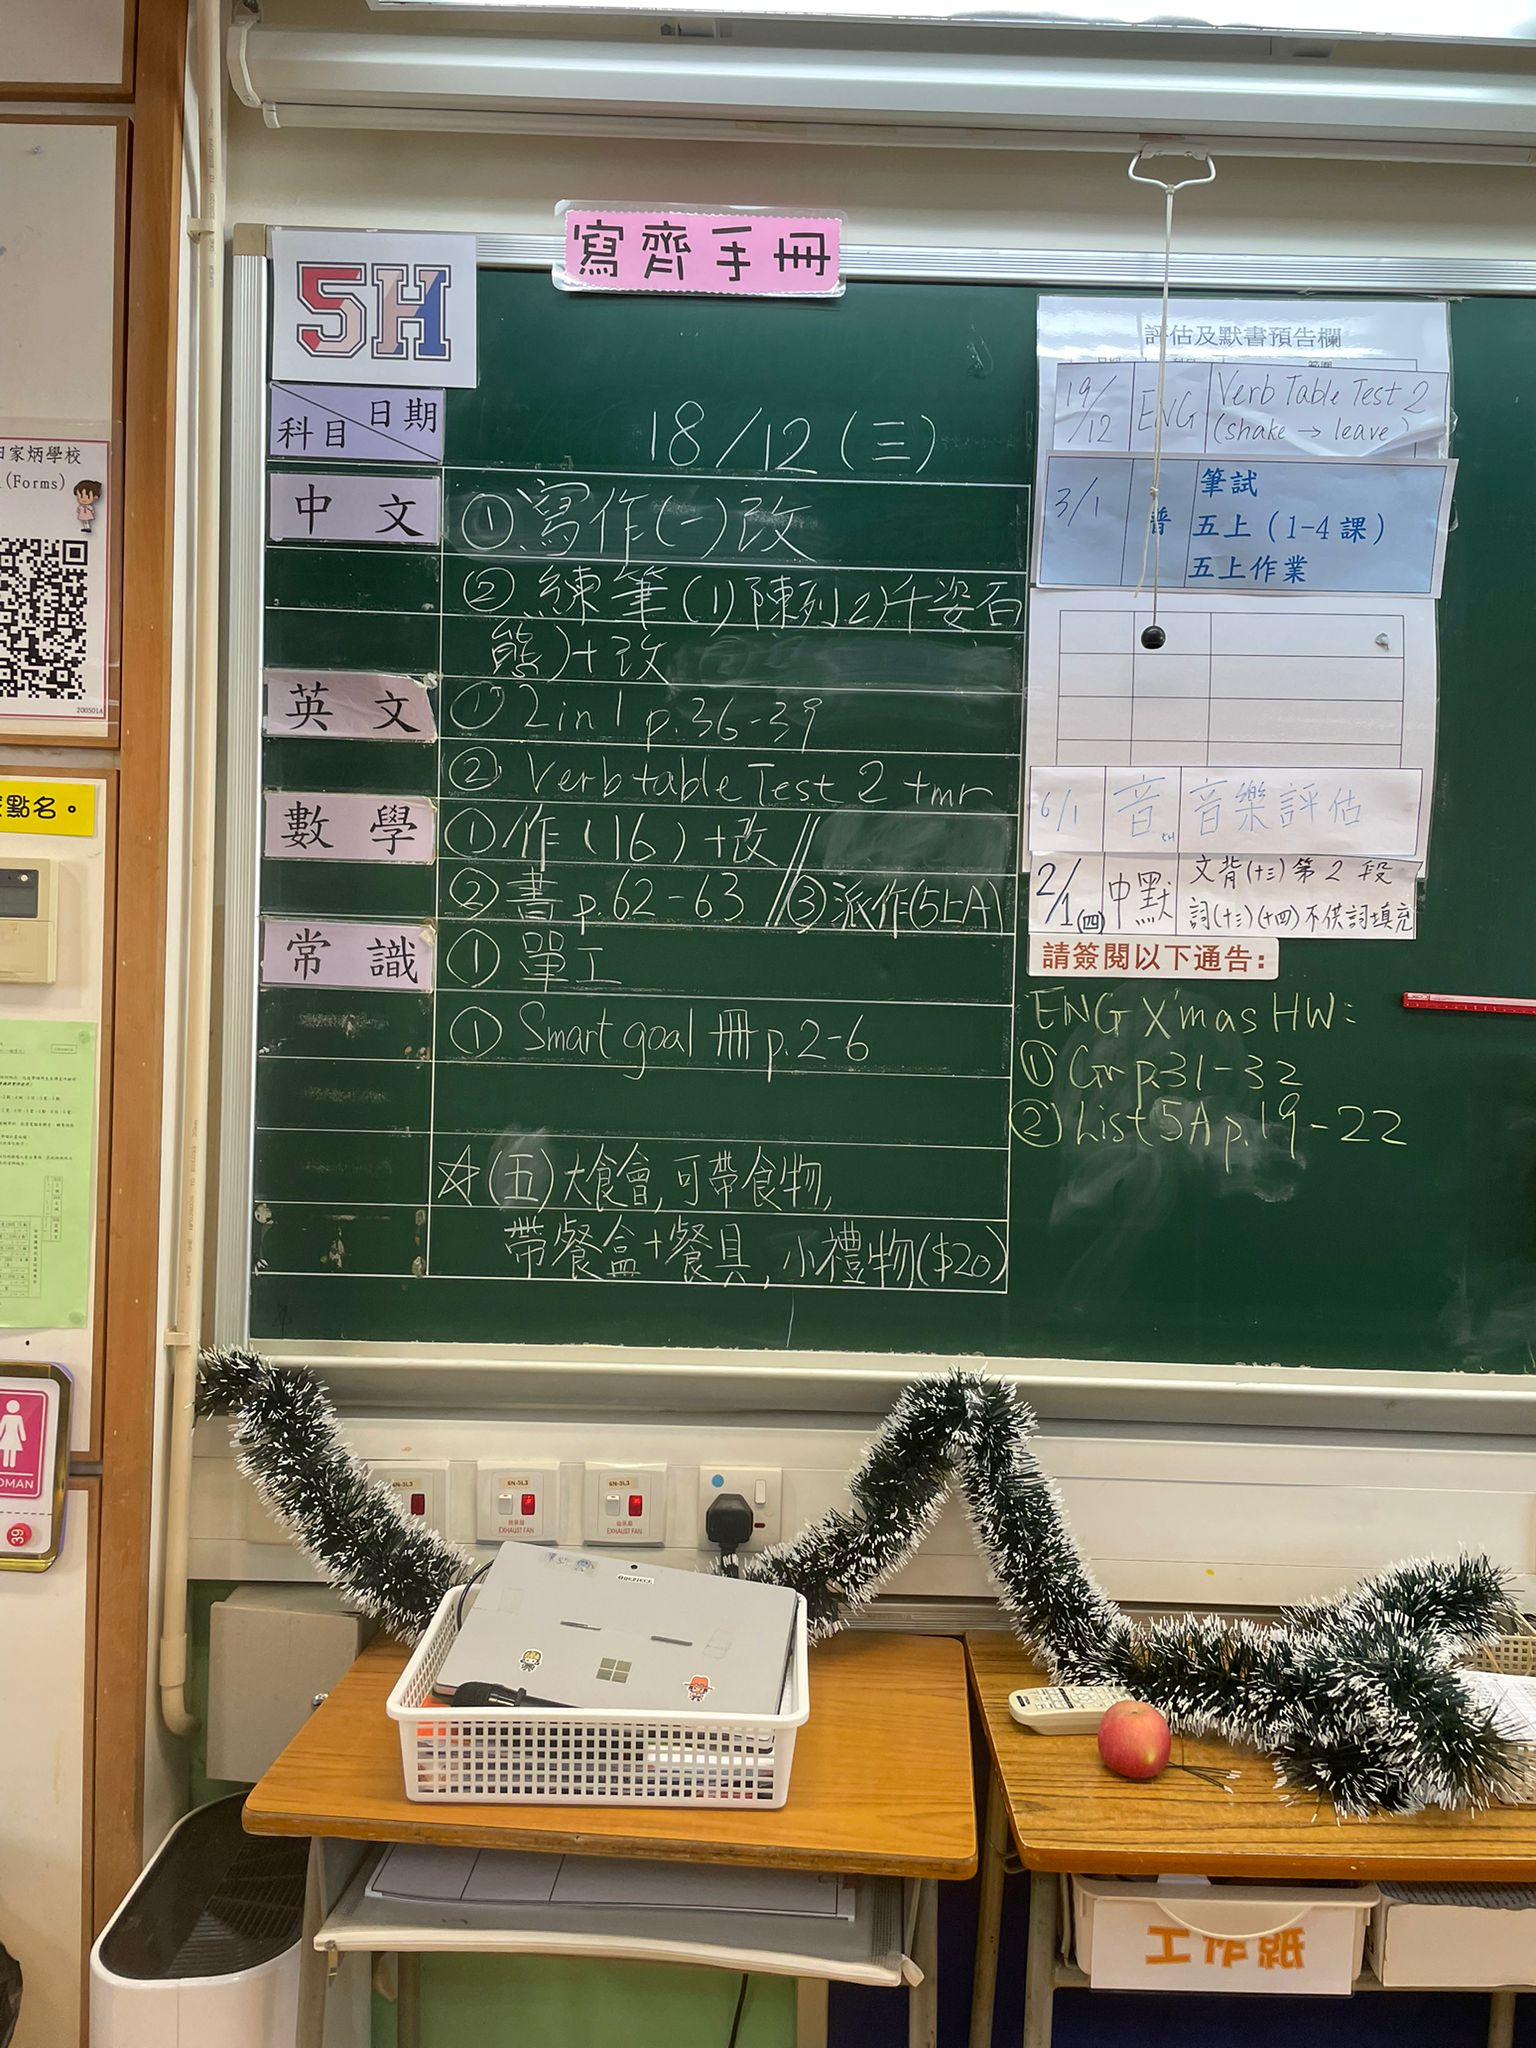 寫齊手冊
5H
日期
科目
18/12(三)
中文
①寫作(一)改
②練筆(1)陳列2)千姿百
態)+改
英文
①2in1 p.36-39
②Verb table Test 2 tmr
數學
①作(16)+改//
②書p.62-63//③派作(5上A)
常識
①單工
①Smart goal冊p.2-6
☆(五)大食會,可帶食物,
帶餐盒+餐具,小禮物($20)
評估及默書預告欄
19/12 ENG Verb Table Test 2
(shake→leave)
3/1 普 筆試
五上(1-4課)
五上作業
6/1 音 音樂評估
2/1(四) 中默 文背(十三)第2段
詞(十三)(十四)不供詞填充
請簽閱以下通告:
ENG X'mas HW:
①Gr p.31-32
②List 5A p.19-22
家炳學校
(Forms)
200501A
點名。
OMAN
39
6N-5L3
EXHAUST FAN
6N-5L3
EXHAUST FAN
工作紙